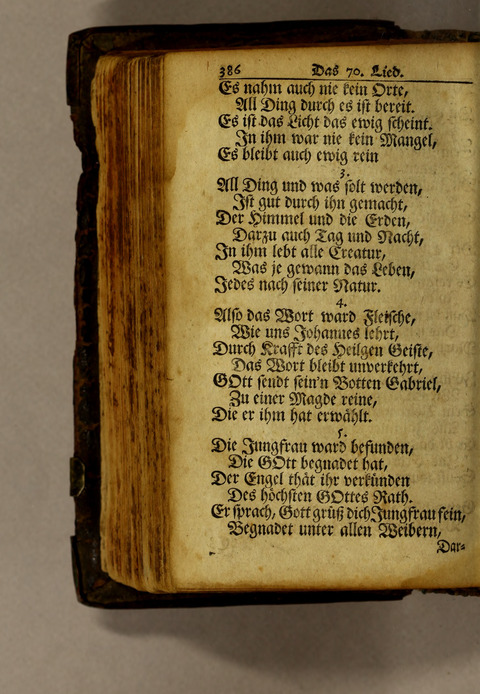 386 Das 70. Lied.
Es nahm auch nie kein Orte,
All Ding durch es ist bereit.
Es ist das Licht das ewig scheint.
In ihm war nie kein Mangel,
Es bleibt auch ewig rein
3.
All Ding und was solt werden,
Ist gut durch ihn gemacht,
Der Himmel und die Erden,
Darzu auch Tag und Nacht,
In ihm lebt alle Creatur,
Was je gewann das Leben,
Jedes nach seiner Natur.
4.
Also das Wort ward Fleische,
Wie uns Johannes lehrt,
Durch Krafft des Heilgen Geiste,
Das Wort bleibt unverkehrt,
GOtt sendt sein'n Botten Gabriel,
Zu einer Magde reine,
Die er ihm hat erwählt.
5.
Die Jungfrau ward befunden,
Die GOtt begnadet hat,
Der Engel thät ihr verkünden
Des höchsten GOttes Rath.
Er sprach, Gott grüß dich Jungfrau fein,
Begnadet unter allen Weibern,
Dar-